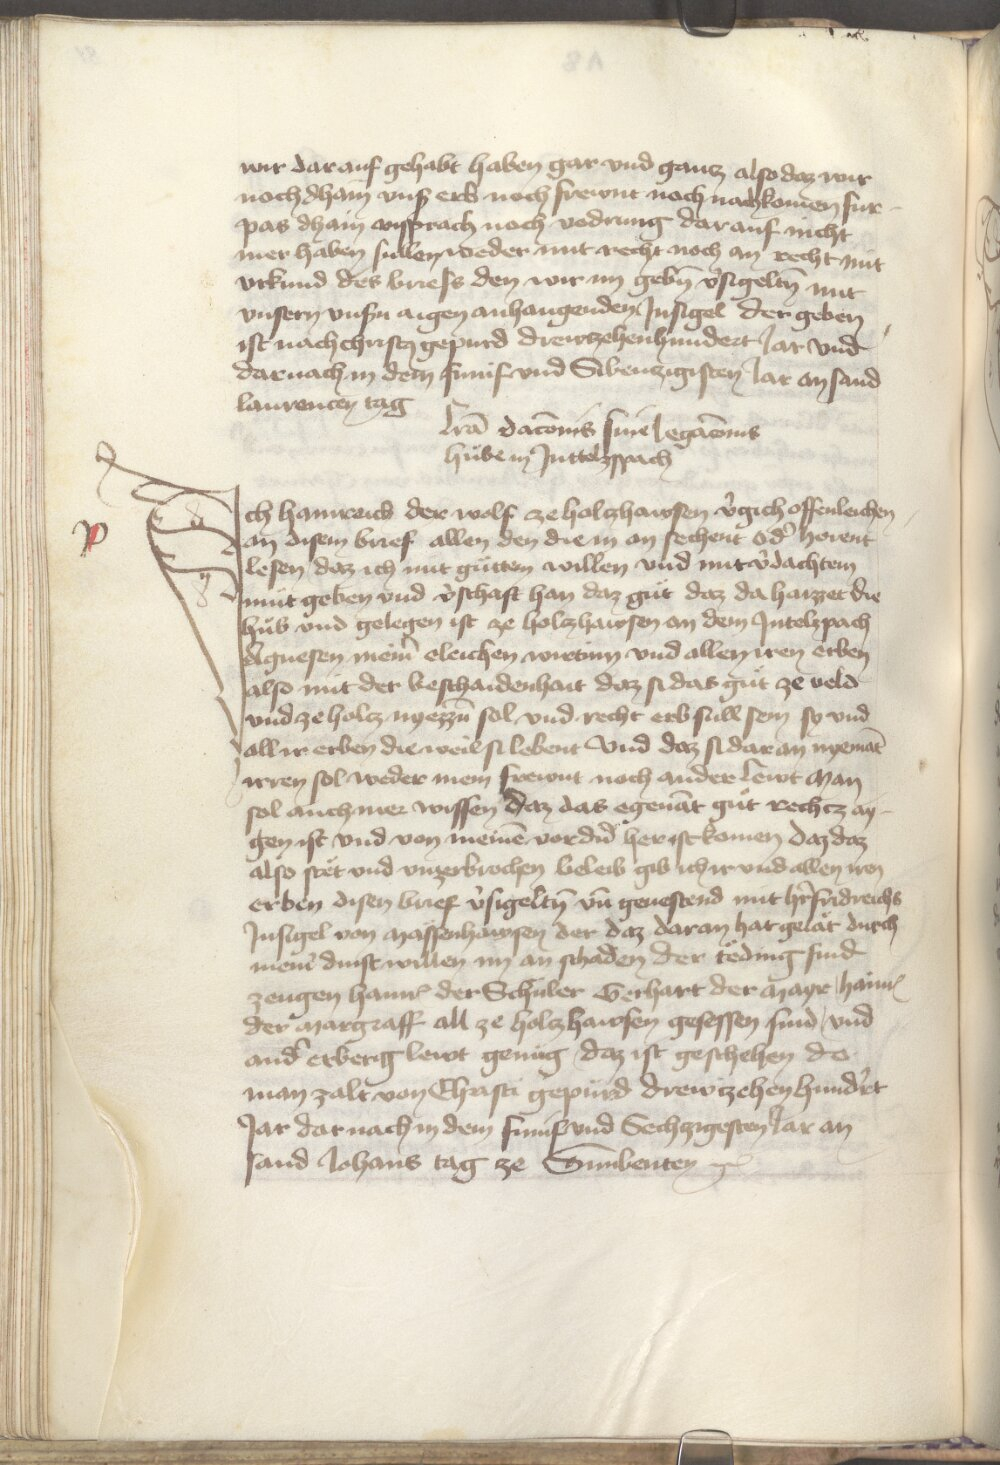 wir dar auf gehabt haben gar vnd gantz also daz wir
noch dhain vnser erb noch frewnt noch nachkomen fur-
pas dhain ansprach noch vodrung dar auf nicht
mer haben sullen weder mit recht noch an recht mit
vrkund des briefs den wir im geben v̉sigelten mit
vnserm vnsern aigen anhangenden Insigel der geben
ist nach christz gepurd drewtzehenhundert Jar vnd
dar nach in dem funif vnd Sibenzigisten Jar an sand
laurencen tag
Lrã dacõnis siue legacõnis
hube in Jnttelzpach
Ich hainreich der wolf ze holtzhawsen v̉gich offenleichen
an disem brief allen den die in an sechent od̉ horent
lesen daz ich mit gůttem willen vnd mit v̉dachtem
můt geben vnd v̉schaft han daz gůt daz da haizzet die
hůb vnd gelegen ist ze holtzhawsen an dem Jntelzpach
Agnesen mein̉ eleichen wirtinn vnd allen iren erben
also mit der beschaidenhait daz si das gůt ze veld
vnd ze holtz nyezzen sol vnd recht erb sull sein sy vnd
all ir erben die weil si lebent Vnd daz si dar an nyemãt
irren sol weder mein frewnt noch ander lewt Man
sol auch mer wissen daz das egenãt gůt rechtz ay-
gen ist vnd von meinen vordn̉ her ist komen Daz daz
also stet vnd vnzerbrochen beleib gib ich ir vnd allen iren
erben disen brief v̉sigelten vñ geuestend mit hr̉ fridreichs
Insigel von Massenhawsen der daz daran hat gelat durch
mein̉ dinst willen im an schaden der teding sind
zeugen hainr̉ der Schuler Gerhart der Mayr hainr̉
der Margraff all ze holtzhawsen gesessen sind vnd
and̉ erberig lewt genůg daz ist geschehen do
man zalt von Christi gepurd drewtzehenhund̉t
Jar dar nach in dem funif vnd Sechtzigesten Jar an
sand Johans tag ze Sunibenten